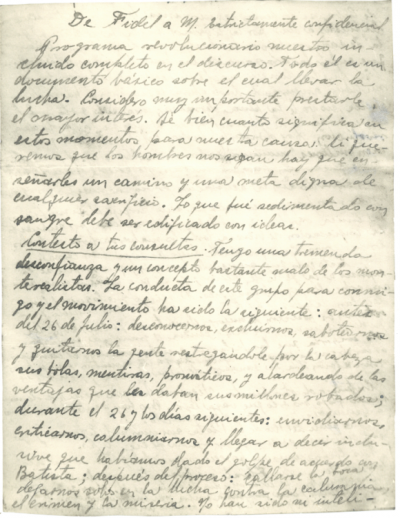 De Fidel a M. Estrictamente confidencial
Programa revolucionario nuestro in-
cluido completo en el discurso. Todo él es un
documento básico sobre el cual llevar la
lucha. Considero muy importante prestarle
el mayor interés. Se bien cuanto significa en
estos momentos para nuestra causa. Si que-
remos que los hombres nos sigan hay que en-
señarles un camino y una meta digna de
cualquier sacrificio. Lo que fué sedimentado con
sangre debe ser edificado con ideas.
Contesto a tus consultas. Tengo una tremenda
desconfianza y un concepto bastante malo de los mon-
trealistas. La conducta de este grupo para conmi-
go y el movimiento ha sido la siguiente: antes
del 26 de julio: desconocernos, excluirnos, sabotearnos
y quitarnos la gente restregándole por la cabeza
sus bolas, mentiras, pronósticos, y alardeando de las
ventajas que les daban sus millones robados;
durante el 26 y los días siguientes: envidiarnos,
criticarnos, calumniarnos y llegar a decir inclu-
sive que habíamos dado el golpe de acuerdo con
Batista; después del proceso: callarse la boca
dejarnos solos en la lucha contra la calumnia,
el crimen y la miseria. No han sido ni inteli-